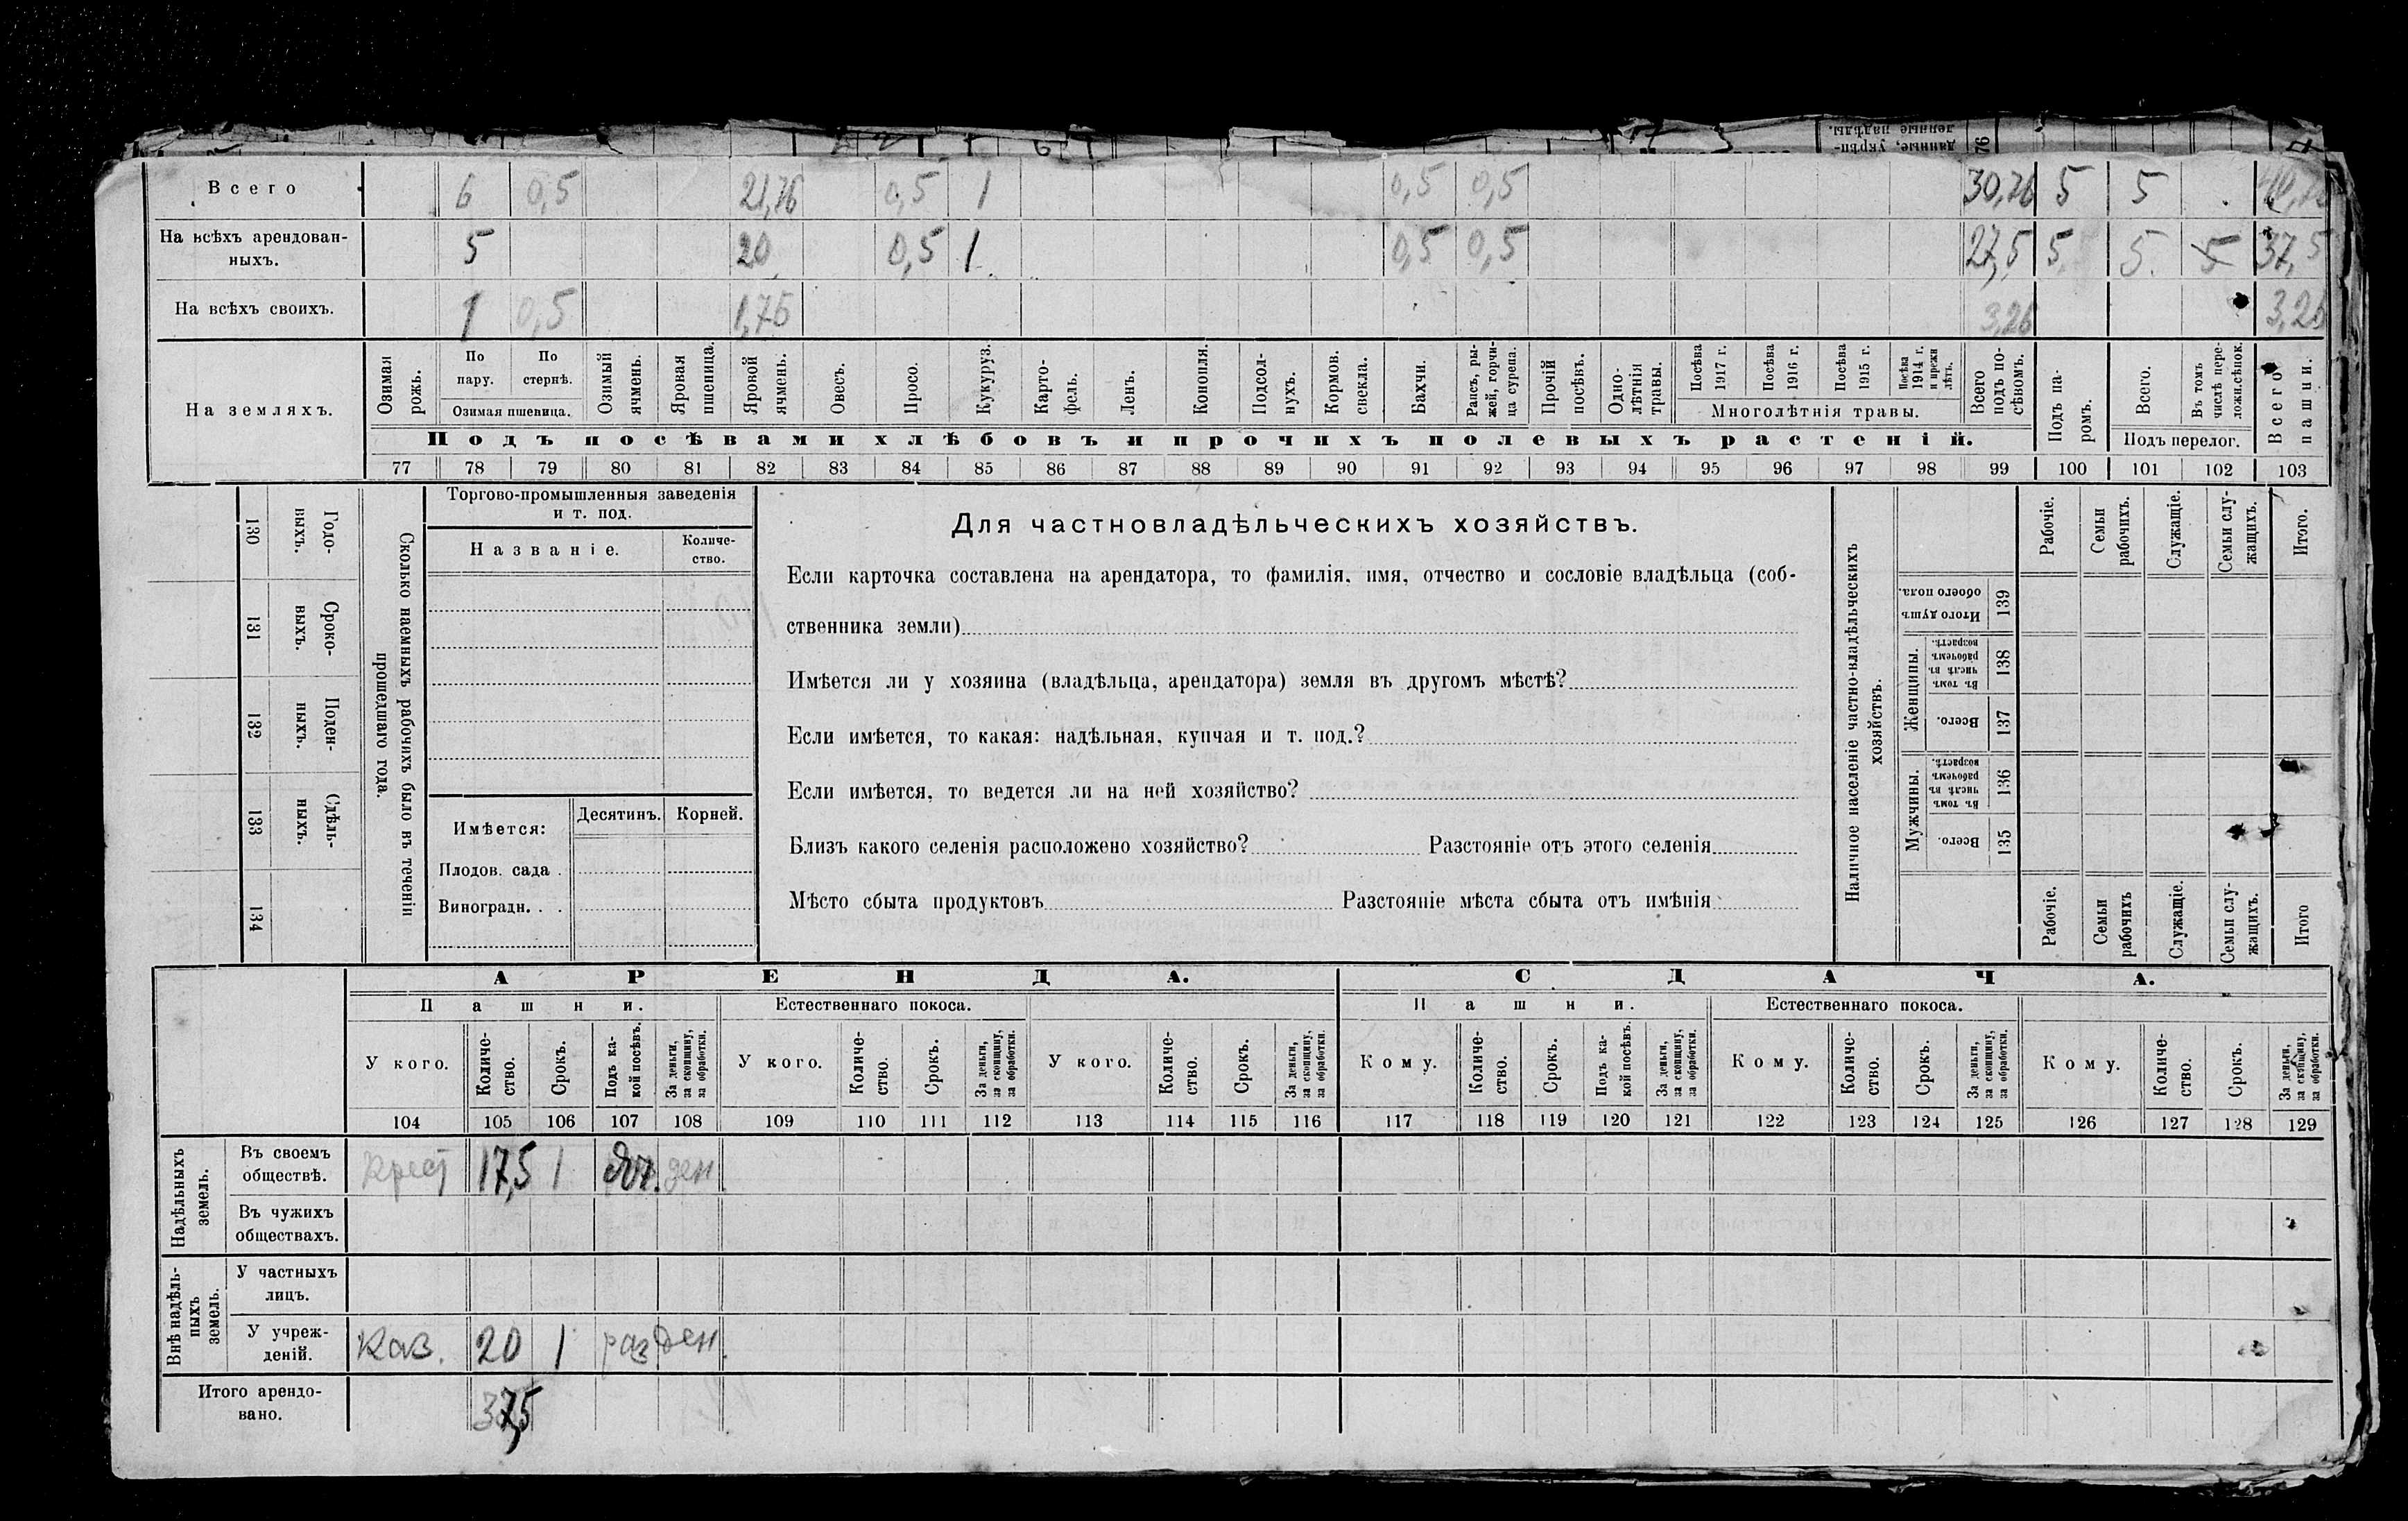 Всего 6 0,5 21,76 0,5 1 0,5 0,5 30,76 5 5
На всѣхъ арендован-
ныхъ. 5 20 0,5 1 0,5 0,5 27,5 5 5. 5 37,5
На всѣхъ своихъ. 1 0,5 1,76 3,26 3,26
На земляхъ.
Озимая рожь.
По пару.
По стернѣ.
Озимая пшеница.
Озимый ячмень.
Яровая пшеница.
Яровой ячмень.
Овесъ.
Просо.
Кукуруз.
Карто-
фель.
Ленъ.
Конопля.
Подсол-
нухъ.
Кормов.
свекла.
Бахчи.
Рапсъ, ры-
жей, горчи-
ца сурепа.
Прочій посѣвъ.
Одно-
лѣтнія
травы.
Посѣва 1917 г.
Посѣва 1916 г.
Посѣва 1915 г.
Посѣва 1914 г. и прежн лѣтъ.
Многолѣтнія травы.
Всего подъ по-
сѣвомъ.
Подъ па-
ромъ.
Всего.
Въ томъ числѣ пере-
ложн.сѣнок.
Подъ перелог.
Всего пашни.
Подъ посѣвами хлѣбовъ и прочихъ полевыхъ растеній.
77 78 79 80 81 82 83 84 85 86 87 88 89 90 91 92 93 94 95 96 97 98 99 100 101 102 103
130 Годо-
выхъ.
131 Сроко-
выхъ.
132 Поден-
ныхъ.
133 Сдѣль-
ныхъ.
134
Сколько наемныхъ рабочихъ было въ теченіи
прошедшаго года.
Торгово-промышленныя заведенія
и т. под.
Названіе.
Количе-
ство.
Имѣется: Десятинъ. Корней.
Плодов. сада .
Виноградн. . .
Для частновладѣльческихъ хозяйствъ.
Если карточка составлена на арендатора, то фамилія, имя, отчество и сословіе владѣльца (соб-
ственника земли)
Имѣется ли у хозяина (владѣльца, арендатора) земля въ другомъ мѣстѣ?
Если имѣется, то какая: надѣльная, купчая и т. под.?
Если имѣется, то ведется ли на ней хозяйство?
Близъ какого селенія расположено хозяйство? Разстояніе отъ этого селенія
Мѣсто сбыта продуктовъ Разстояніе мѣста сбыта отъ имѣнія
Наличное населеніе частно-владѣльческихъ
хозяйствъ.
Рабочіе.
Семьи рабочихъ.
Служащіе.
Семьи слу-
жащихъ.
Итого.
Итого душъ обоего пола. 139
Женщины.
Въ томъ числѣ въ рабочемъ возрастѣ. 138
Всего. 137
Мужчины.
Въ томъ числѣ въ рабочемъ возрастѣ. 136
Всего. 135
Рабочіе.
Семьи рабочихъ
Служащіе.
Семьи слу-
жащихъ.
Итого
АРЕНДА. СДАЧА.
Пашни. Естественнаго покоса. Пашни. Естественнаго покоса.
У кого.
Количе-
ство.
Срокъ.
Подъ ка-
кой посѣвъ.
За деньги,
за скопщину,
за обработки.
У кого.
Количе-
ство.
Срокъ.
За деньги,
за скопщину,
за обработки.
У кого.
Количе-
ство.
Срокъ.
За деньги,
за скопщину,
за обработки.
Кому.
Количе-
ство.
Срокъ.
Подъ ка-
кой посѣвъ.
За деньги,
за скопщину,
за обработки.
Кому.
Количе-
ство.
Срокъ.
За деньги,
за скопщину,
за обработки.
Кому.
Количе-
ство.
Срокъ.
За деньги,
за скопщину,
за обработки.
104 105 106 107 108 109 110 111 112 113 114 115 116 117 118 119 120 121 122 123 124 125 126 127 128 129
Надѣльныхъ
земель.
Въ своемъ
обществѣ. Крест 17,5 1 ден
Въ чужихъ
обществахъ.
Внѣ надѣль-
ныхъ
земель.
У частныхъ
лицъ.
У учреж-
деній. Каз. 20 1 раз ден
Итого арендо-
вано. 37,5